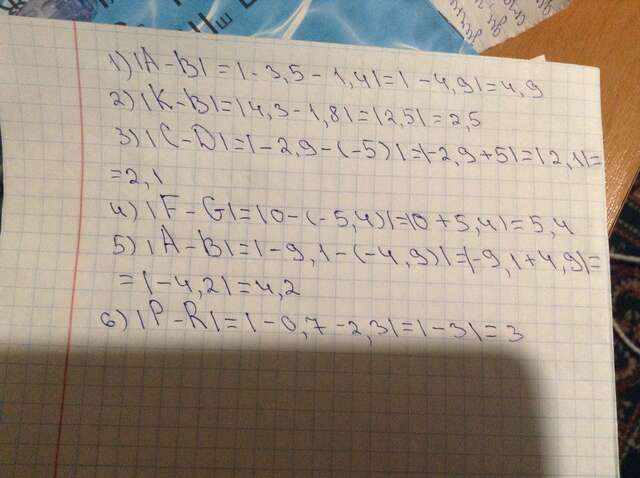 1) |A-B|=|-3,5-1,4|=|-4,9|=4,9
2) |K-B|=|4,3-1,8|=|2,5|=2,5
3) |C-D|=|-2,9-(-5)|=|-2,9+5|=|2,1|=
=2,1
4) |F-G|=|0-(-5,4)|=|0+5,4|=5,4
5) |A-B|=|-9,1-(-4,9)|=|-9,1+4,9|=
=|-4,2|=4,2
6) |P-R|=|-0,7-2,3|=|-3|=3